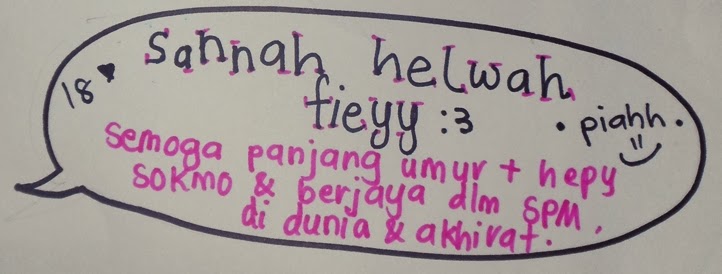 18 ♥ sannah helwah
fieyy :3
• piahh •
semoga panjang umur + hepy
sokmo & berjaya dlm SPM,
di dunia & akhirat.